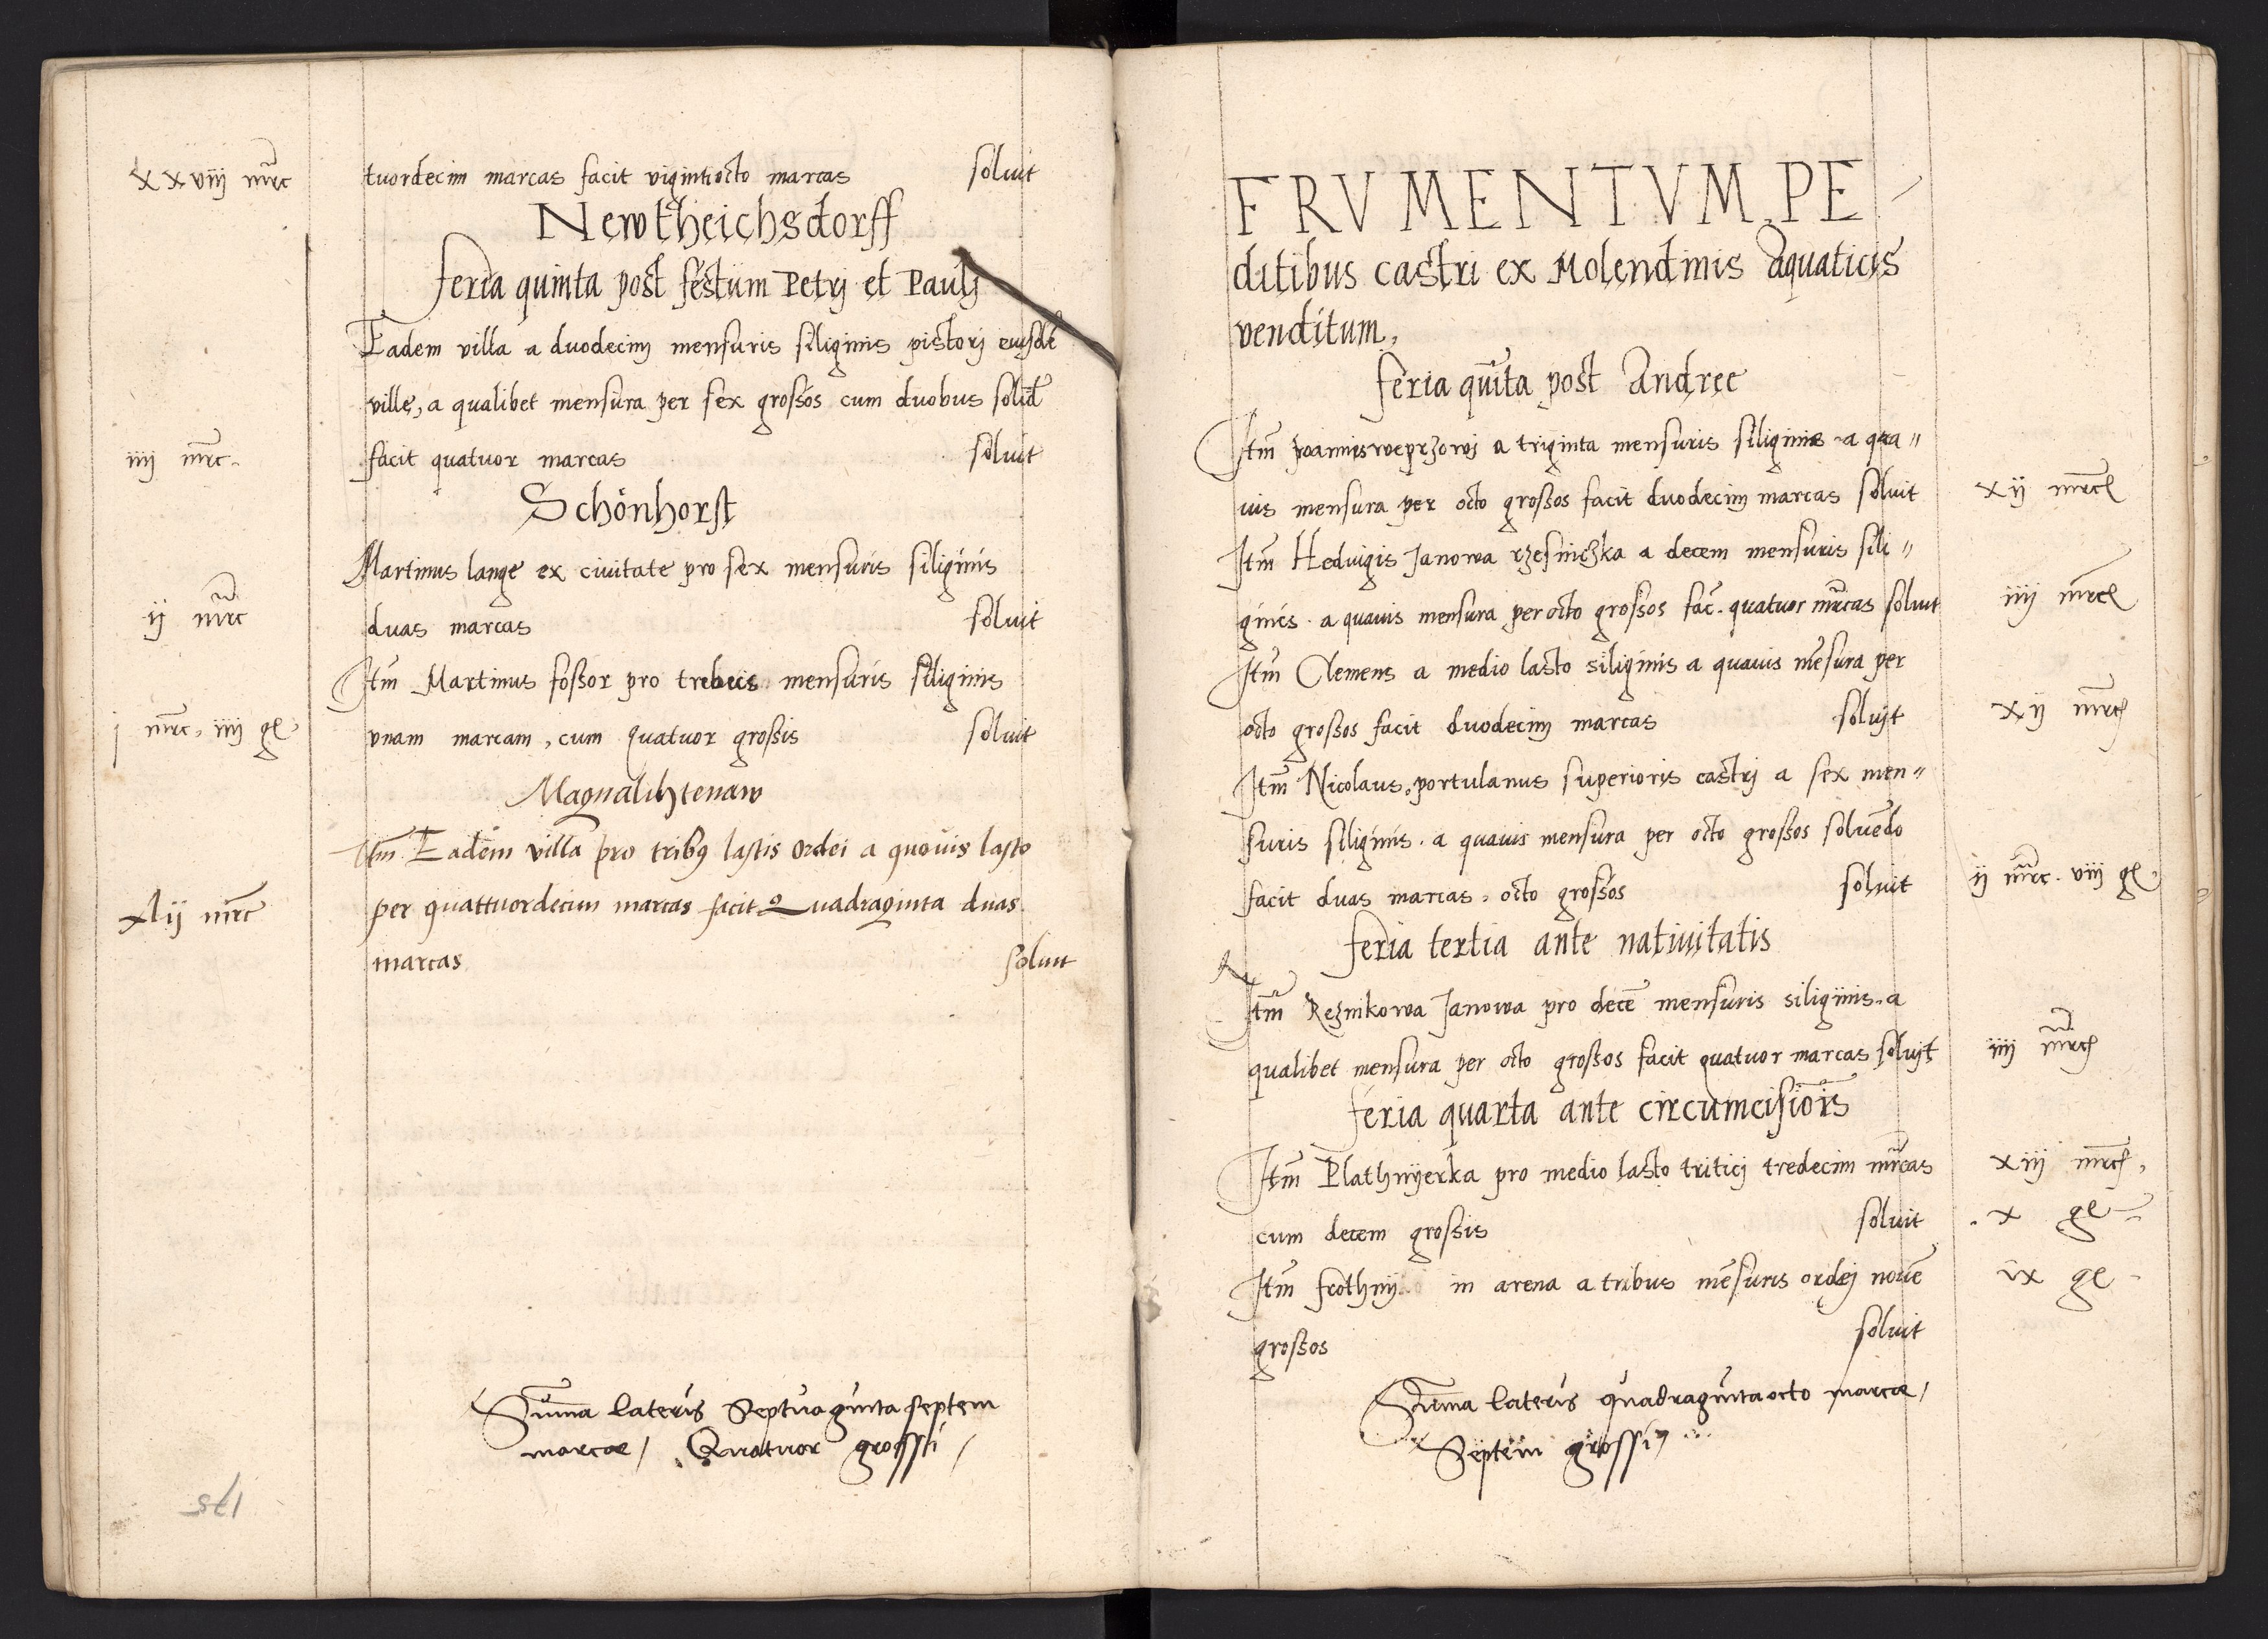 xxviij mrc tuordecim marcas facit vigintiocto marcas soluit
Newtheichsdorff
feria quinta post festum Petrj et Paulj
Eadem villa a duodecim mensuris siliginis pistorj eiusdē
ville, a qualibet mensura per sex grossos cum duobus solid
iiij mrc. facit quatuor marcas soluit
Schönhorst
Martinus lange ex ciuitate pro sex mensuris siliginis
ij mrc duas marcas soluit
Itm Martinus fossor pro mensuris siliginis
j mrc, iiij gr vnam marcam, cum quatuor grossis soluit
Magnalichtenaw
Itm Eadem villa pro tribꝰ lastis ordei a quouis lasto
per quattuordecim marcas facit Quadraginta duas
xlij mrc marcas soluit
Suma lateris Septuaginta septem
marcae / Quatuor grossi /
175
FRVMENTVM PE
ditibus castri ex Molendinis Aquaticis
venditum,
feria quīta post Andree
Itm a triginta mensuris siliginis a qua〃
uis mensura per octo grossos facit duodecim marcas soluit xij mrc
Itm Heduigis Janowa rzesniczka a decem mensuris sili〃
ginis. a quauis mensura per octo grossos fac. quatuor mrcas soluit iiij mrc
Itm Clemens a medio lasto siliginis a quauis mēsura per
octo grossos facit duodecim marcas soluit xij mrc
Itm Nicolaus, portulanus superioris castrj a sex men〃
suris siliginis. a quauis mensura per octo grossos soluēdo
facit duas marcas, octo grossos soluit ij mrc. viij gr
feria tertia ante natiuitatis
Itm Reznikowa Janowa pro decē mensuris siliginis. a
qualibet mensura per octo grossos facit quatuor marcas soluit iiij mrc
feria quarta ante circumcisiōis
Itm Plathnyerka pro medio lasto triticj tredecim mrcas xiij mrc,
cum decem grossis soluit x gr
Itm frothny in arena a tribus mēsuris ordej nouē ix gr
grossos soluit
Suma lateris quadragintaocto marcae /
Septem grossi